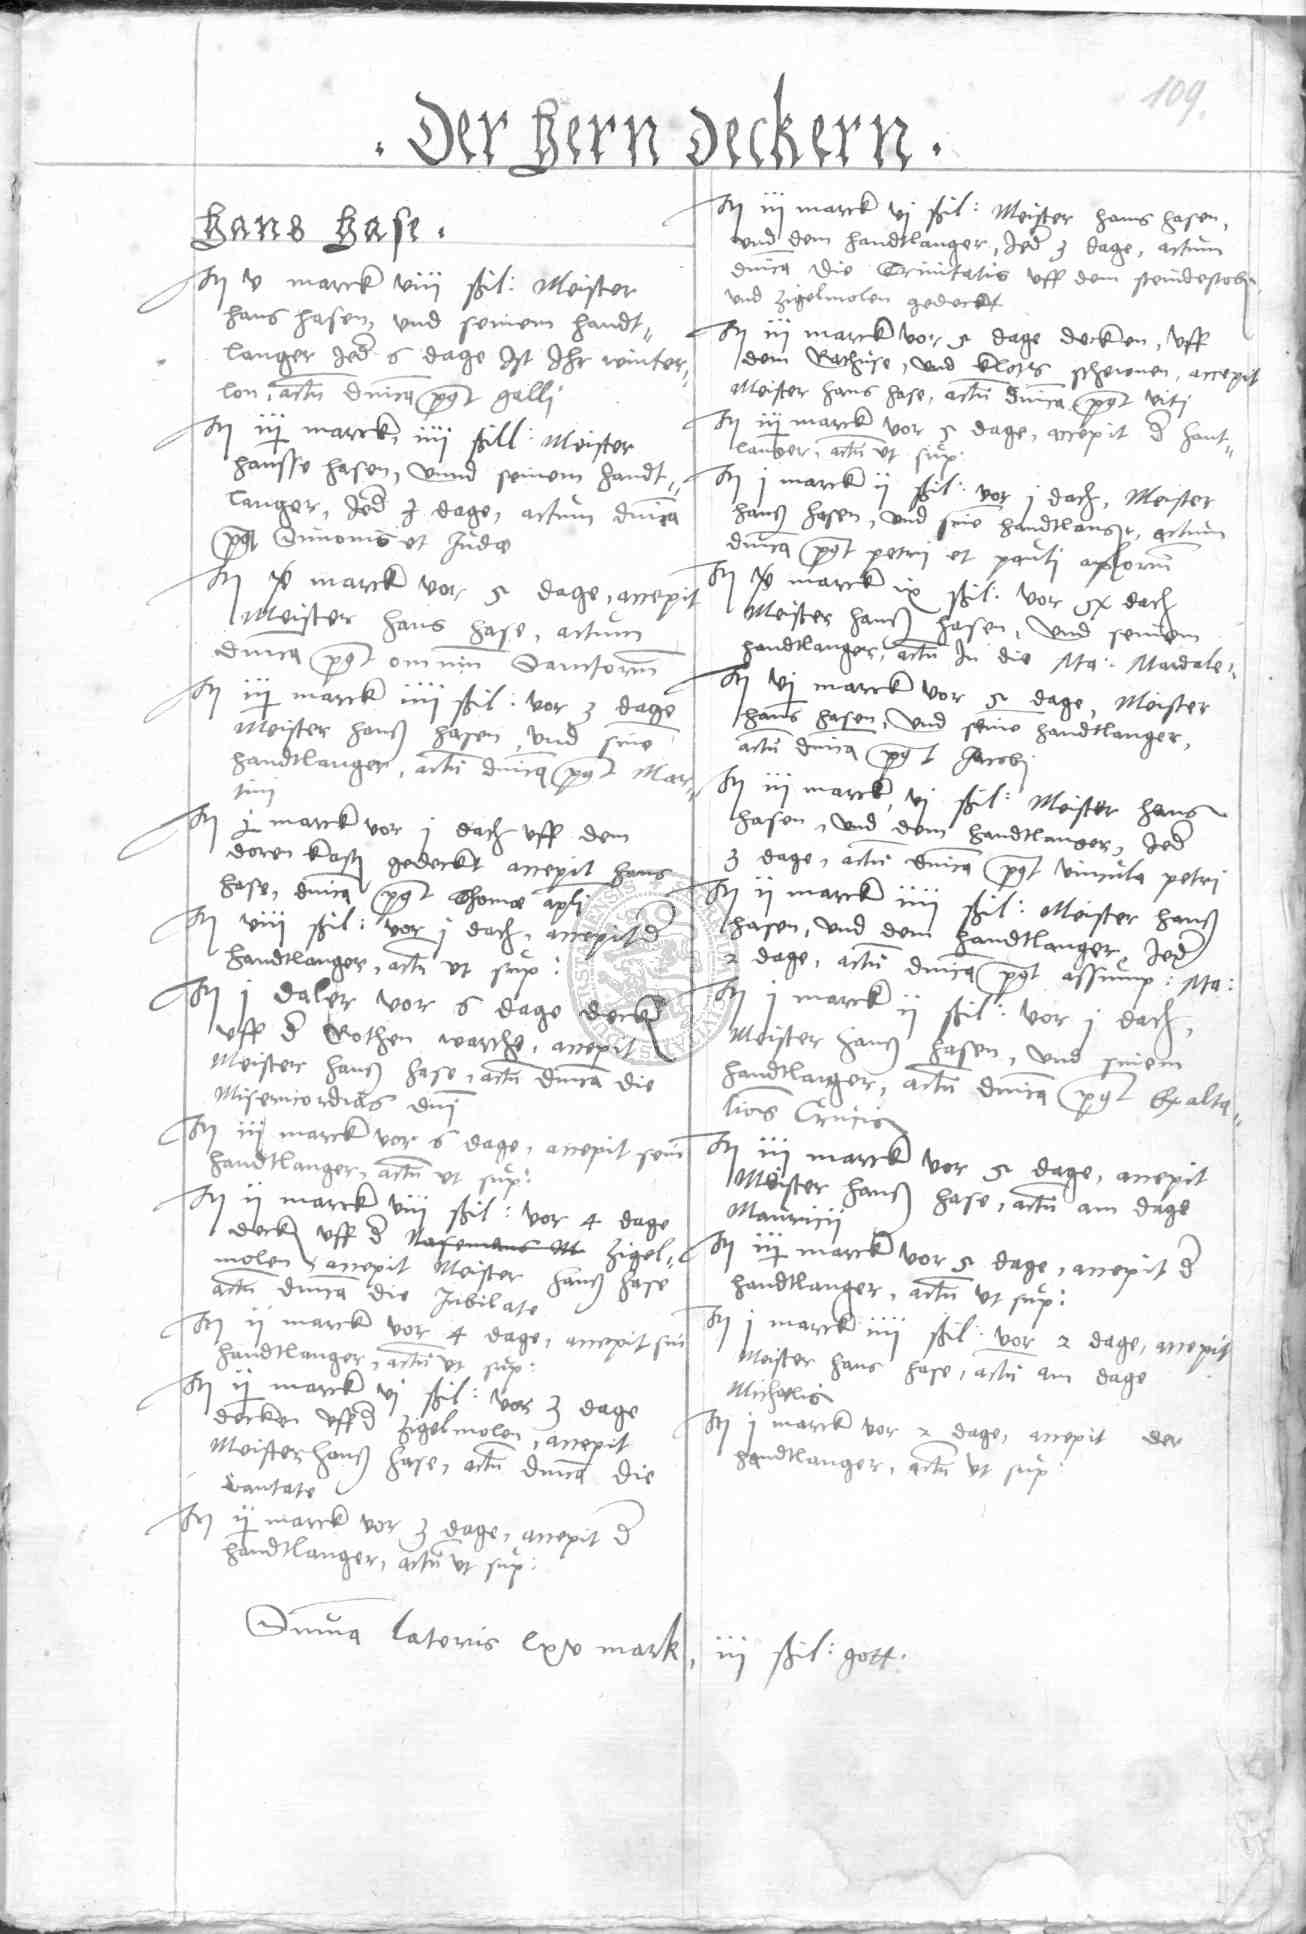 109.
. Der Hern Deckern .
Hans Hase .
It v marck viii ßil: Meister
Hans Hasen, vnd seinem handt„
langer Jed 6 dage Ist Ihr winter„
lon, actū dnica pt galli
It marck, iiii ßill: Meister
Hansse Hasen, vnnd seinem handt„
langer, Jed dage, actum dnica
pt Simonis et Jude
It marck vor 5 dage, accepit
Meister Hans Hase, actum
dnica pt omniu Sanctorum
It marck iiii ßil: vor 3 dage
Meister Hanß Hasen, vnd sine
handtlanger, actū dnica pt Mar„
tini
It marck vor j dach vff dem
doren gedeckt accepit Hans
Hase, dnica pt Thome apli
It viii ßil: vor j dach, accepit d
handtlanger, actū vt sup:
It j daler vor 6 dage deck
vff d Rothen warche, accepit
Meister Hanß Hase, actū dnica die
Misericordias dni
It iij marck vor 6 dage, accepit sein
handtlanger, actū vt sup:
It ii marck viii ßil: vor 4 dage
deck vff d Zigel„
molen, accepit Meister Hanß Hase
actū dnica die Jubilate
It ii marck vor 4 dage, accepit sin
handtlanger, actū vt sup:
It marck vj ßil: vor 3 dage
decken vff d Zigelmolen, accepit
Meister Hanß Hase, actū dnica die
Cantate
It marck vor 3 dage, accepit d
handtlanger, actū vt sup:
It iij marck vj ßil: Meister Hans Hasen,
vnd dem handtlanger, Jed 3 dage, actum
dnica die Trinitatis vff dem
vnd Zigelmolen gedeckt
It iij marck vor 5 dage decken, vff
dem Rathuse, vnd Klots schewnen, accepit
Meister Hans Hase, actū dnica pt Viti
It marck vor 5 dage, accepit d hant„
langer, actū vt sup:
It j marck ij ßil: vor j dach, Meister
Hanß Hasen, vnd sine handtlanger, actum
dnica pt petri et pauli aplorum
It marck ix ßil: vor dach
Meister Hanß Hasen, vnd seinem
handtlanger, actū In die Ma: Mardale„
It vj marck vor 5 dage, Meister
Hans Hasen, vnd seine handtlanger,
actū dnica pt Jacobi
It iij marck, vj ßil: Meister Hans
Hasen, vnd dem handtlanger, Jed
3 dage, actū dnica pt vincula petri
It ii marck iiii ßil: Meister Hanß
Hasen, vnd dem handtlanger, Jed
2 dage, actū dnica pt assump: Ma:
It j marck ij ßil: vor j dach,
Meister Hanß Hasen, vnd sinem
handtlanger, actū dnica pt Exalta„
tiois Crucis
It iij marck vor 5 dage, accepit
Meister Hanß Hase, actū am dage
Mauricii
It marck vor 5 dage, accepit d
handtlanger, actū vt sup:
It j marck iiii ßil: vor 2 dage, accepit
Meister Hans Hase, actū am dage
Michaelis
It j marck vor 2 dage, accepit der
handtlanger, actū vt sup
Suma lateris lxv mark, iij ßil: gott.